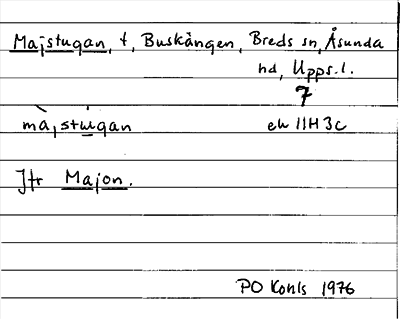 Majstugan, t, Buskängen, Breds sn, Åsunda
hd, Upps. l.
7
màjstùgan ek 11H3c
Jfr Majon.
PO Konls 1976